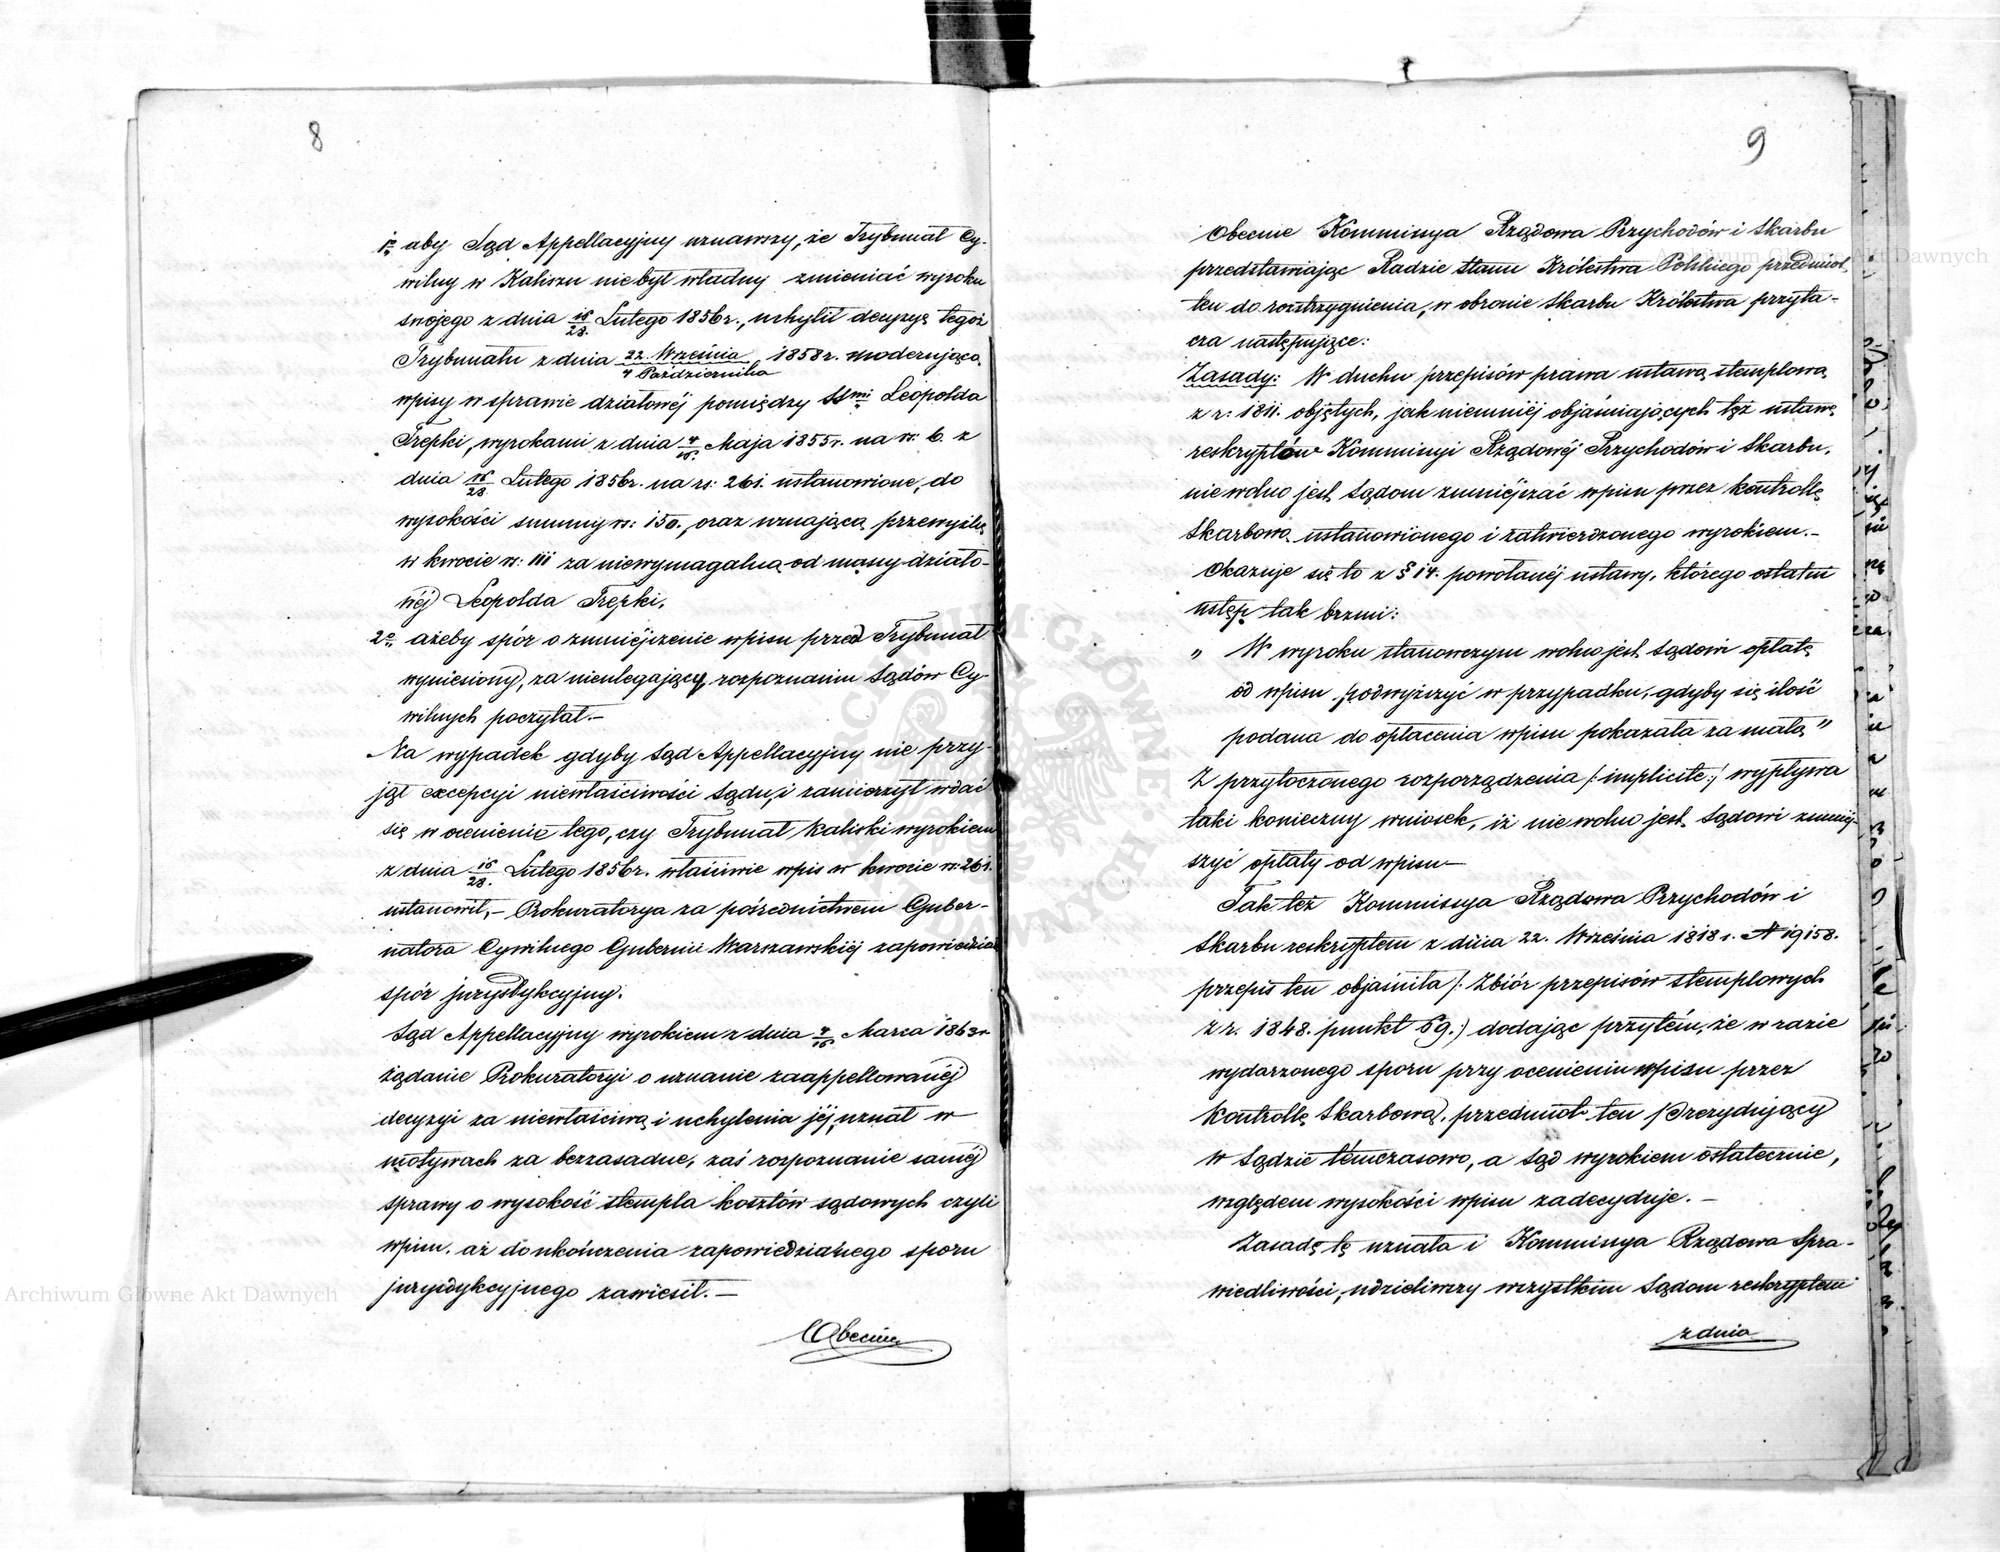 8
1e aby Sąd Appellacyjny uznawszy, że Trybunał Cy-
wilny w Kaliszu nie był władny zmieniać wyroku
swojego z dnia 16/28. Lutego 1856r., uchylił decyzyę tegoż
Trybunału z dnia 22. Września / 4 Października 1858r. moderującą
wpisy w sprawie działowéj pomiędzy SSmi Leopolda
Trepki, wyrokami z dnia 4/16. Maja 1855r. na rs: 6. z
dnia 16/28. Lutego 1856r. na rs: 261. ustanowione, do
wysokości summy rs: 150., oraz uznającą przewyżkę
w kwocie rs: 111 za niewymagalną od massy działo-
wéj Leopolda Trepki,
2e ażeby spór o zmniéjszenie wpisu przed Trybunał
wyniesiony, za nieulegający rozpoznaniu Sądów Cy-
wilnych poczytał.—
Na wypadek gdyby Sąd Appellacyjny nie przy-
jął excepcyi niewłaściwości Sądu, i zamierzył wdać
się w ocenienie tego, czy Trybunał Kaliski wyrokiem
z dnia 16/28. Lutego 1856r. właściwie wpis w kwocie rs: 261.
ustanowił,— Prokuratorya za pośrednictwem Guber-
natora Cywilnego Gubernii Warszawskiéj zapowiedziała
spór jurysdykcyjny.
Sąd Appellacyjny wyrokiem z dnia 4/16. Marca 1863r.
żądanie Prokuratoryi o uznanie zaappellowanéj
decyzyi za niewłaściwą i uchylenia jéj, uznał w
motywach za bezzasadne, zaś rozpoznanie saméj
sprawy o wysokość stempla kosztów sądowych czyli
wpisu, aż do ukończenia zapowiedzianego sporu
jurysdykcyjnego zawiesił.—
Obecnie
9
Obecnie Kommissya Rządowa Przychodów i Skarbu
przedstawiając Radzie Stanu Królestwa Polskiego przedmiot
ten do rozstrzygnienia, w obronie Skarbu Królestwa przyta-
cza następujące:
Zasady: W duchu przepisów prawa ustawą stemplową
z r: 1811. objętych, jak niemniéj objaśniających tęż ustawę
reskryptów Kommissyi Rządowéj Przychodów i Skarbu,
nie wolno jest Sądom zmniéjszać wpisu przez kontrollę
Skarbową ustanowionego i zatwierdzonego wyrokiem.—
Okazuje się to z § 14. powołanéj ustawy, którego ostatni
ustęp tak brzmi:
„ W wyroku stanowczym wolno jest Sądowi opłatę
od wpisu podwyższyć w przypadku, gdyby się ilość
podana do opłacenia wpisu pokazała za małą"
Z przytoczonego rozporządzenia /:implicite:/ wypływa
taki konieczny wniosek, iż nie wolno jest Sądowi zmniéj-
szyć opłaty od wpisu—
Tak też Kommissya Rządowa Przychodów i
Skarbu reskryptem z dnia 22. Września 1818 r. N 19158.
przepis ten objaśniła /: Zbiór przepisów stemplowych
z r. 1848. punkt 59.) dodając przytém, że w razie
wydarzonego sporu przy ocenieniu wpisu przez
Kontrollę Skarbową, przedmiot ten Prezydujący
w Sądzie témczasowo, a Sąd wyrokiem ostatecznie,
względem wysokości wpisu zadecyduje.—
Zasadę tę uznała i Kommissya Rządowa Spra-
wiedliwości, udzieliwszy wszystkim Sądom reskryptem
z dnia
Archiwum Główne Akt Dawnych
Archiwum Główne Akt Dawnych